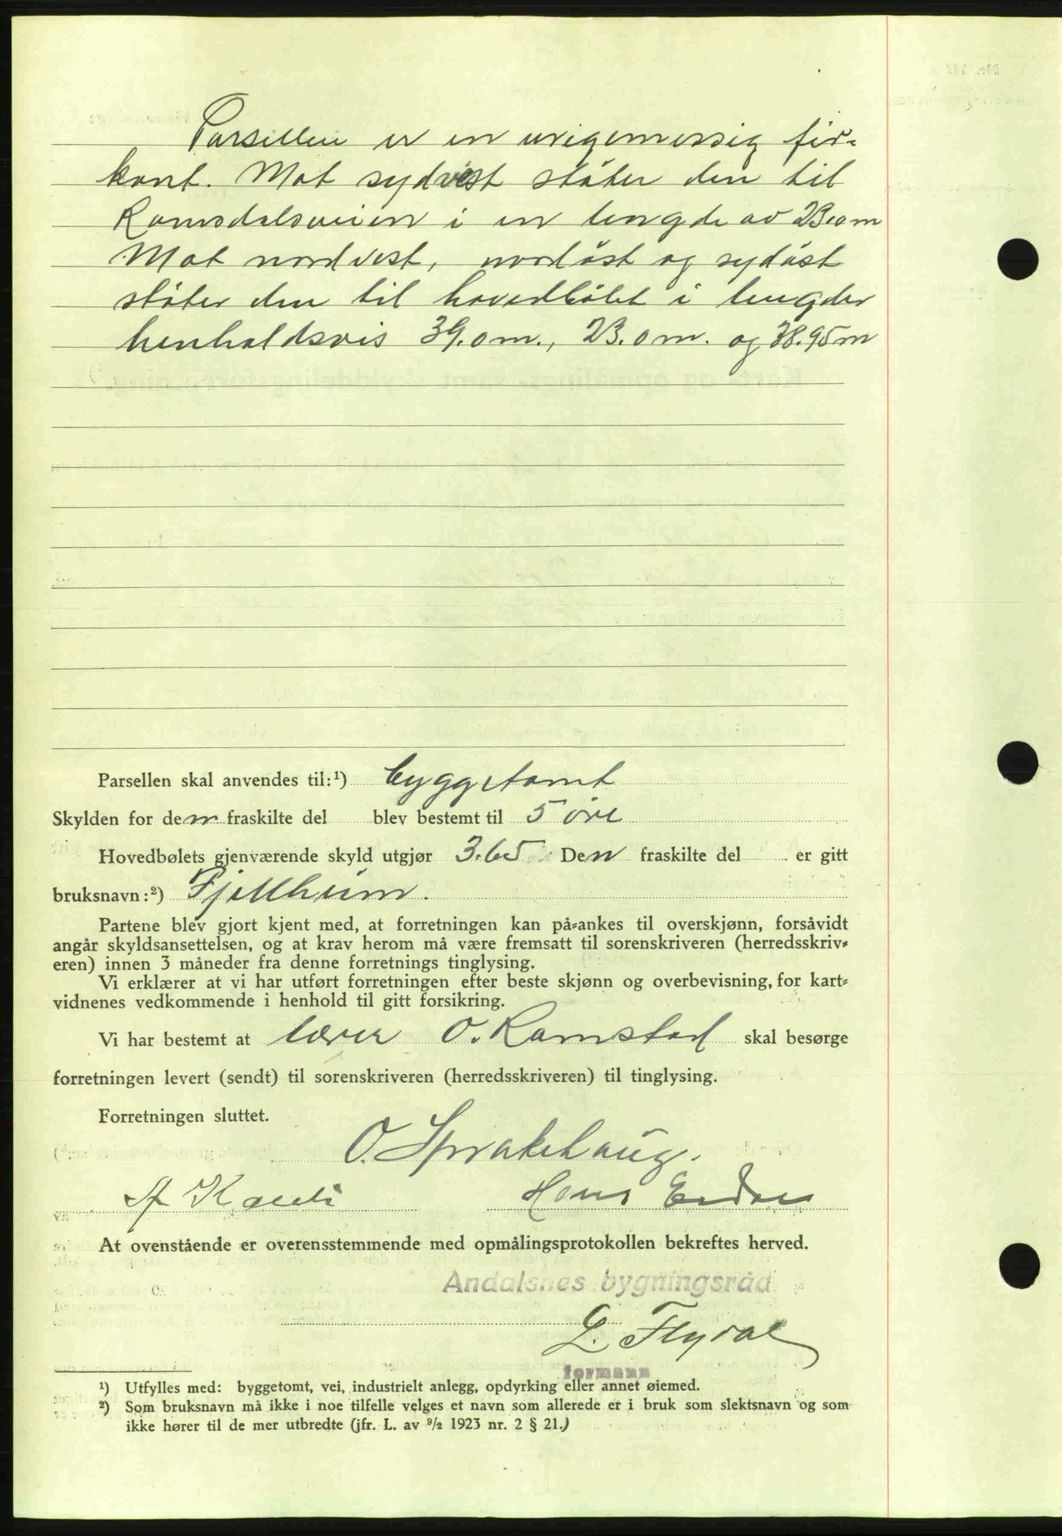 Parsellen er en uregemessig fir-
kant. Mot sydvest støter den til
Ramsdalsveien i en lengde av 23.0 m
Mot nordvest, nordøst og sydøst
støter den til hovedbølet i lengder
henholdsvis 39.0 m., 23.0 m. og 38.95 m
Parsellen skal anvendes til:¹) byggetomt
Skylden for den fraskilte del blev bestemt til 5 øre
Hovedbølets gjenværende skyld utgjør 3.65 Den fraskilte del er gitt
bruksnavn:²) Fjellheim.
Partene blev gjort kjent med, at forretningen kan på-ankes til overskjønn, forsåvidt
angår skyldsansettelsen, og at krav herom må være fremsatt til sorenskriveren (herredsskriv-
eren) innen 3 måneder fra denne forretnings tinglysing.
Vi erklærer at vi har utført forretningen efter beste skjønn og overbevisning, for kart-
vidnenes vedkommende i henhold til gitt forsikring.
Vi har bestemt at lærer O. Ramstad skal besørge
forretningen levert (sendt) til sorenskriveren (herredsskriveren) til tinglysing.
Forretningen sluttet.
O. Sprakehaug.
Hans
At ovenstående er overensstemmende med opmålingsprotokollen bekreftes herved.
Andalsnes bygningsråd
L. Flydal
formann
¹) Utfylles med: byggetomt, vei, industrielt anlegg, opdyrking eller annet øiemed.
²) Som bruksnavn må ikke i noe tilfelle velges et navn som allerede er i bruk som slektsnavn og som
ikke hører til de mer utbredte (jfr. L. av 9/2 1923 nr. 2 § 21.)